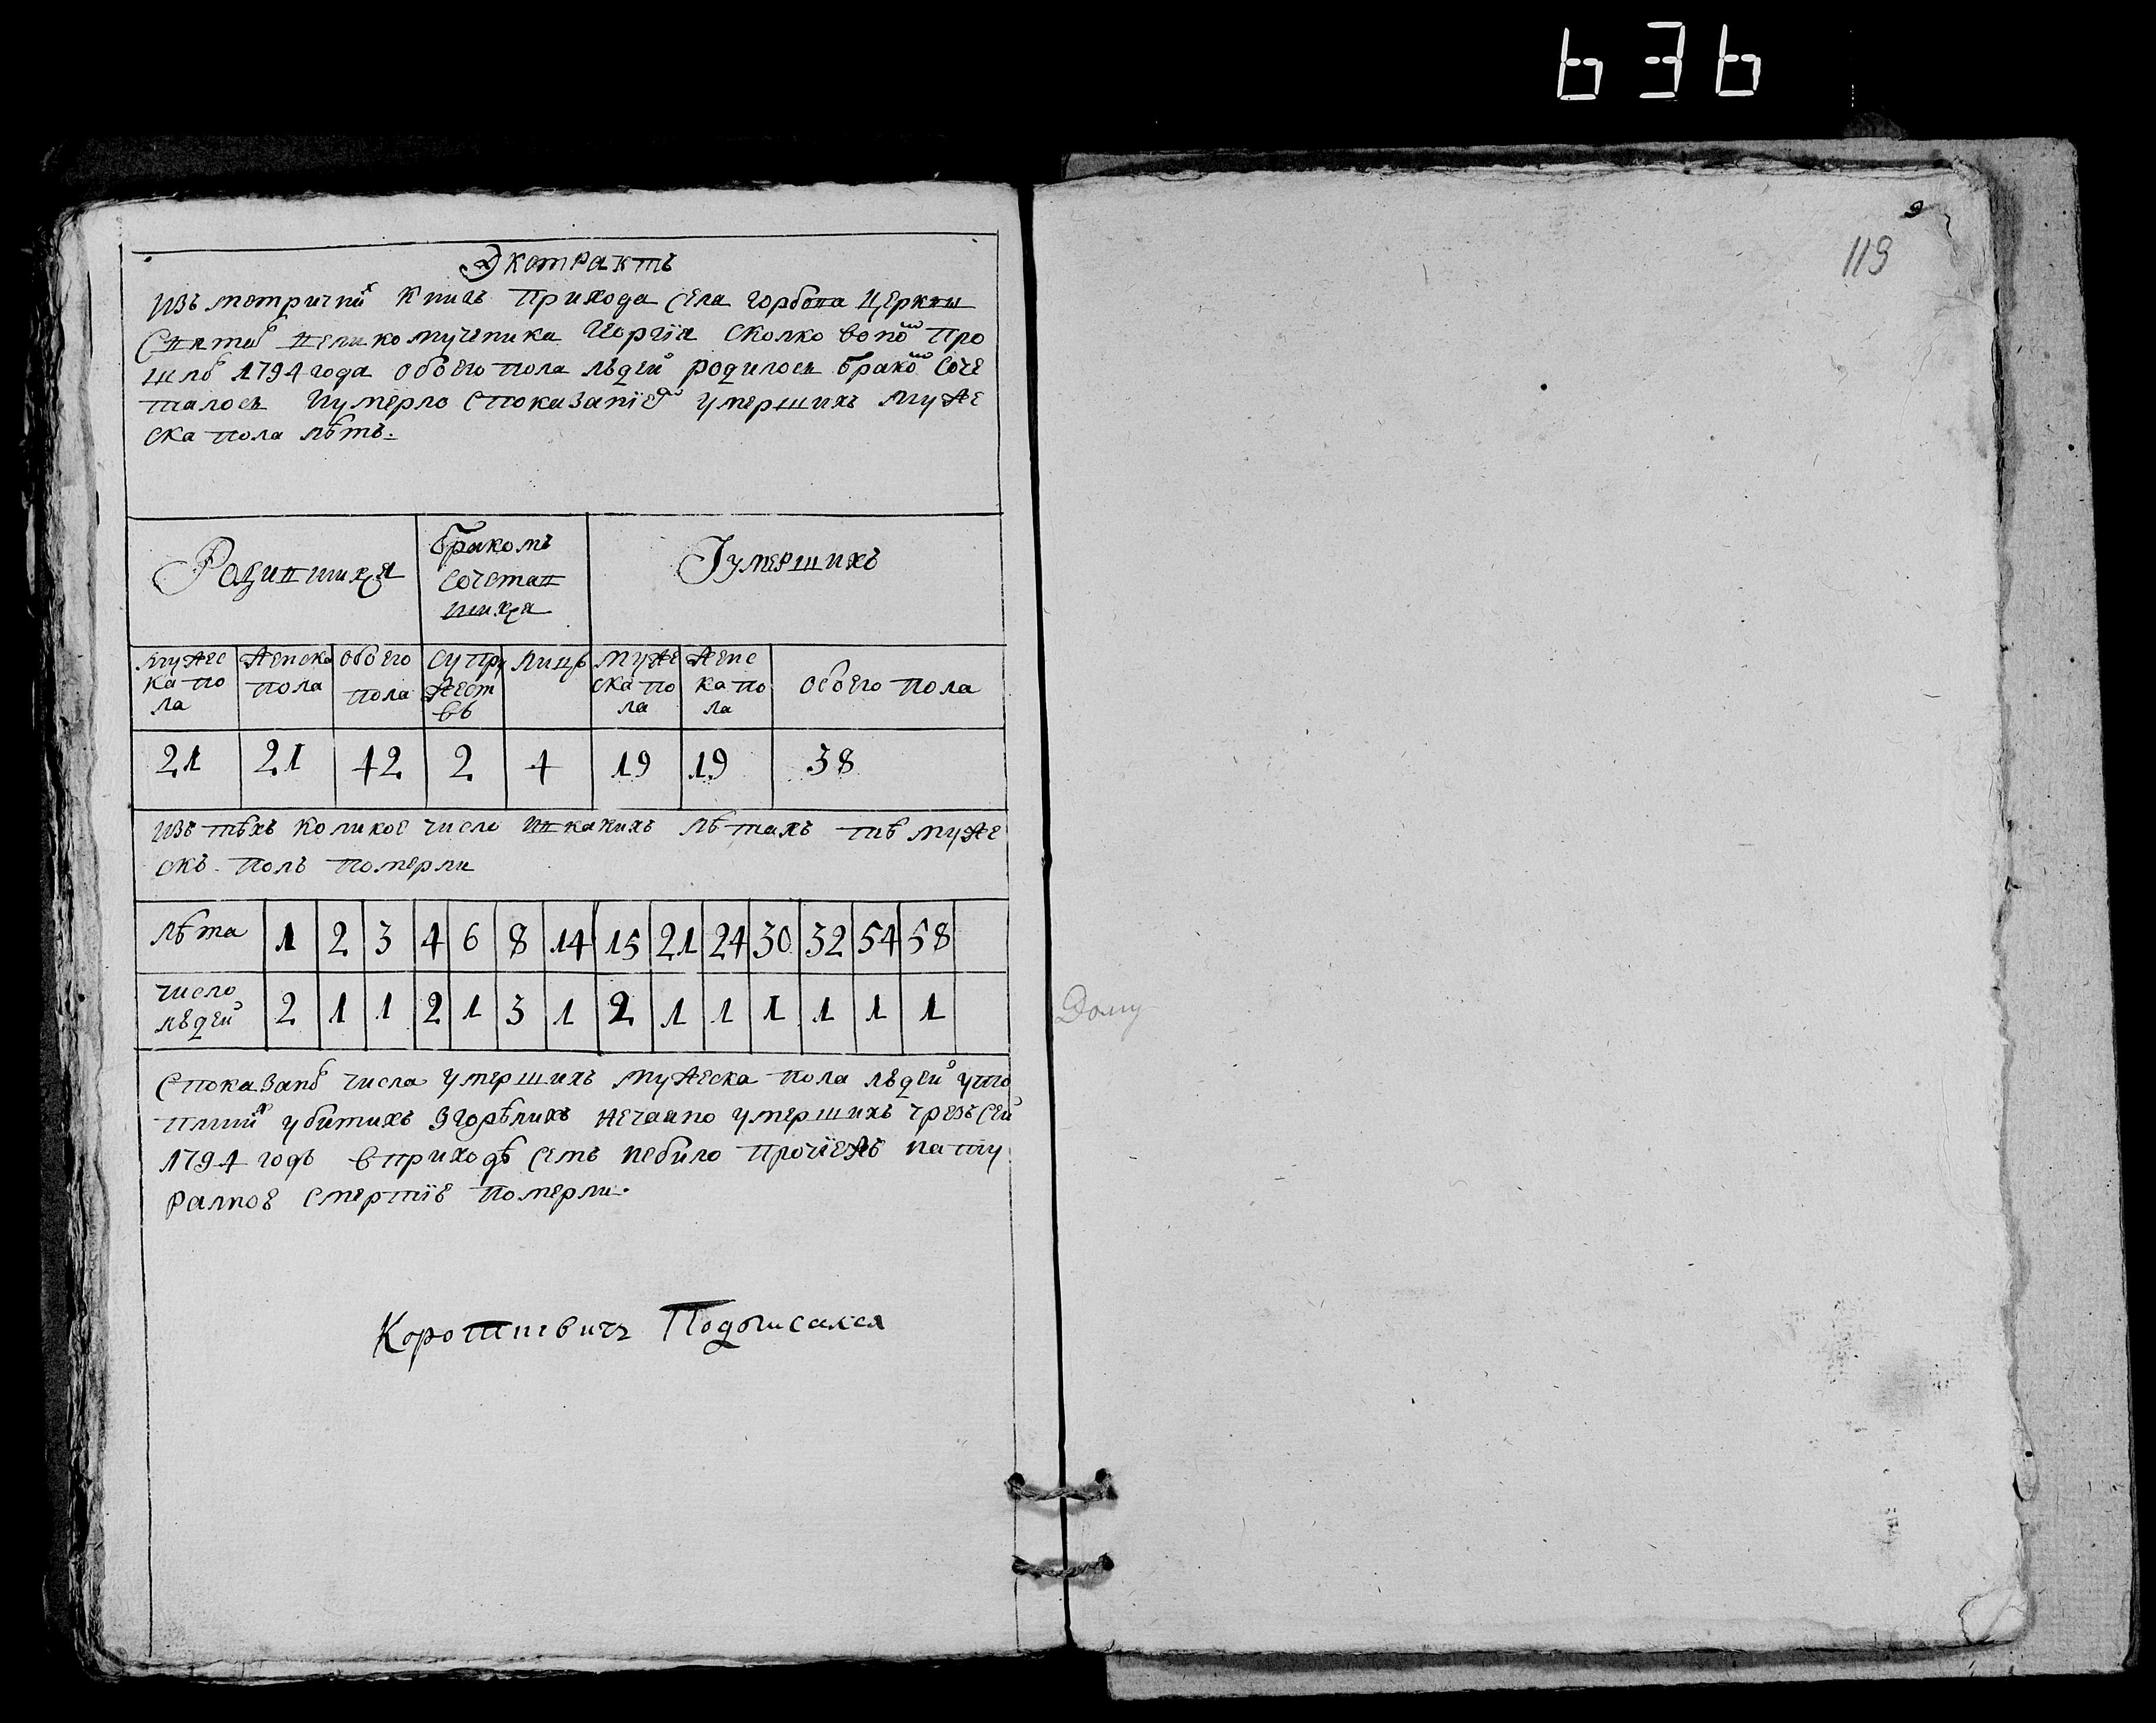 636
Экстрактъ
изъ метричних книгъ прихода села Горбова церкви
Святаго великомученика Георгія сколко вономъ про
шломъ 1794 года обоего пола людей родилося бракомъ соче
талося и умерло споказаніемъ умершихъ муже
ска пола лѣтъ.
Родившихся
бракомъ
сочетав
шихся
Іумершихъ
мужес
ка по
ла
женска
пола
обоего
пола
супру
жест
въ
лицъ
муже
ска по
ла
женс
ка по
ла
обоего пола
21 21 42 2 4 19 19 38
изъ тѣхъ коликое число ивкакихъ лѣтахъ твъ муже
скъ полъ померли
лѣта 1 2 3 4 6 8 14 15 21 24 30 32 54 58
число
людей 2 1 1 2 1 3 1 2 1 1 1 1 1 1
споказаного числа умершихъ мужеска пола людей уто
плших убитихъ згорѣлихъ нечаяно умершихъ чрезъ сей
1794 годъ вприходѣ семъ небило прочіежъ нату
ралное смертіе померли.
Подписался
119
Дому